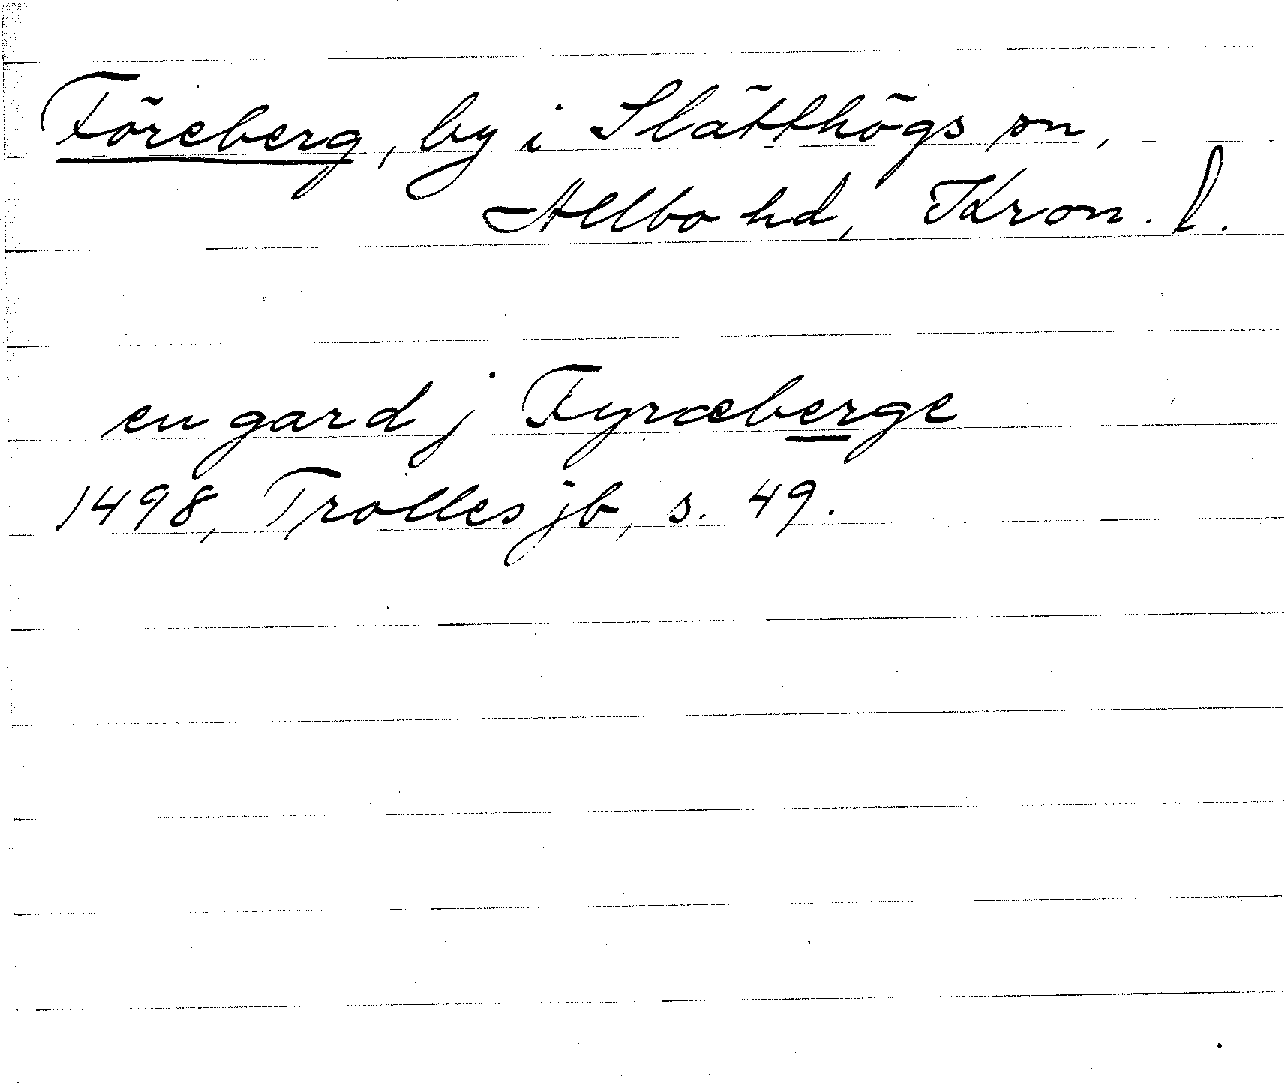 Föreberg, by i Slätthögs sn,
Allbo hd, Kron. l.
en gard j Fyræberge
1498, Trolles jb, s. 49.